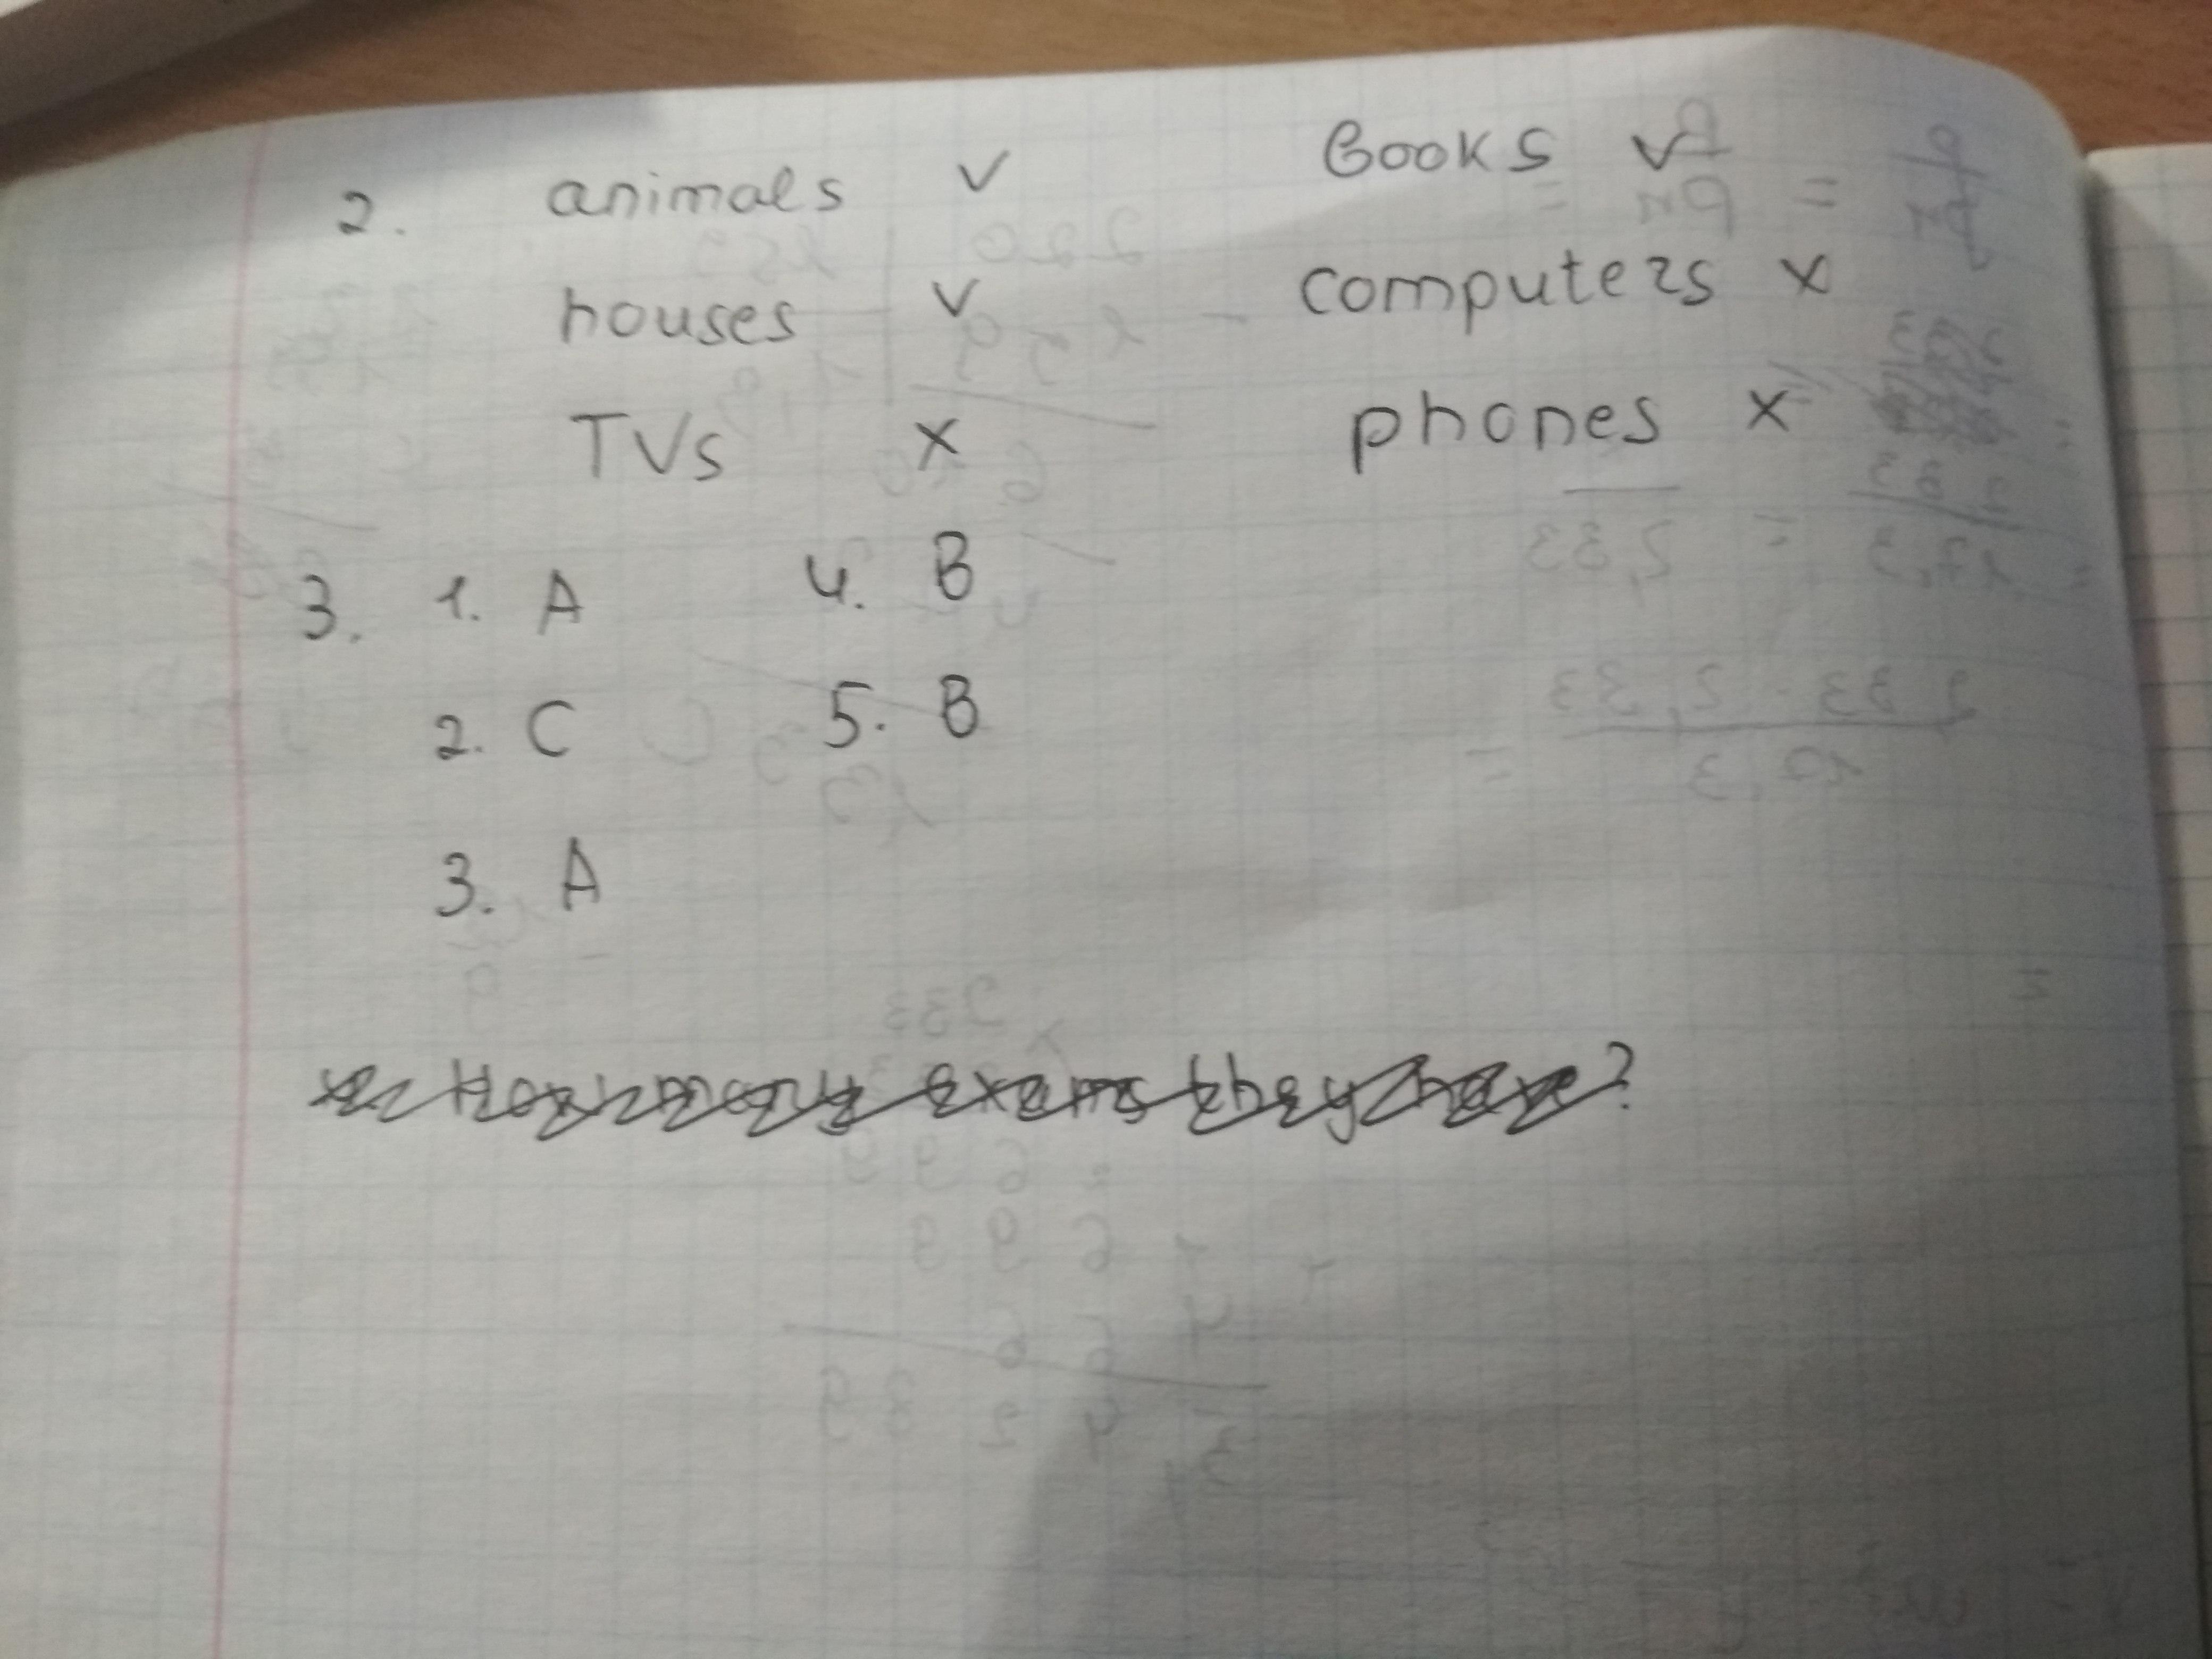 2. animals v Books v
houses v computers x
TVs x phones x
3. 1. A 4. B
2. C 5. B
3. A
How many exams they have?